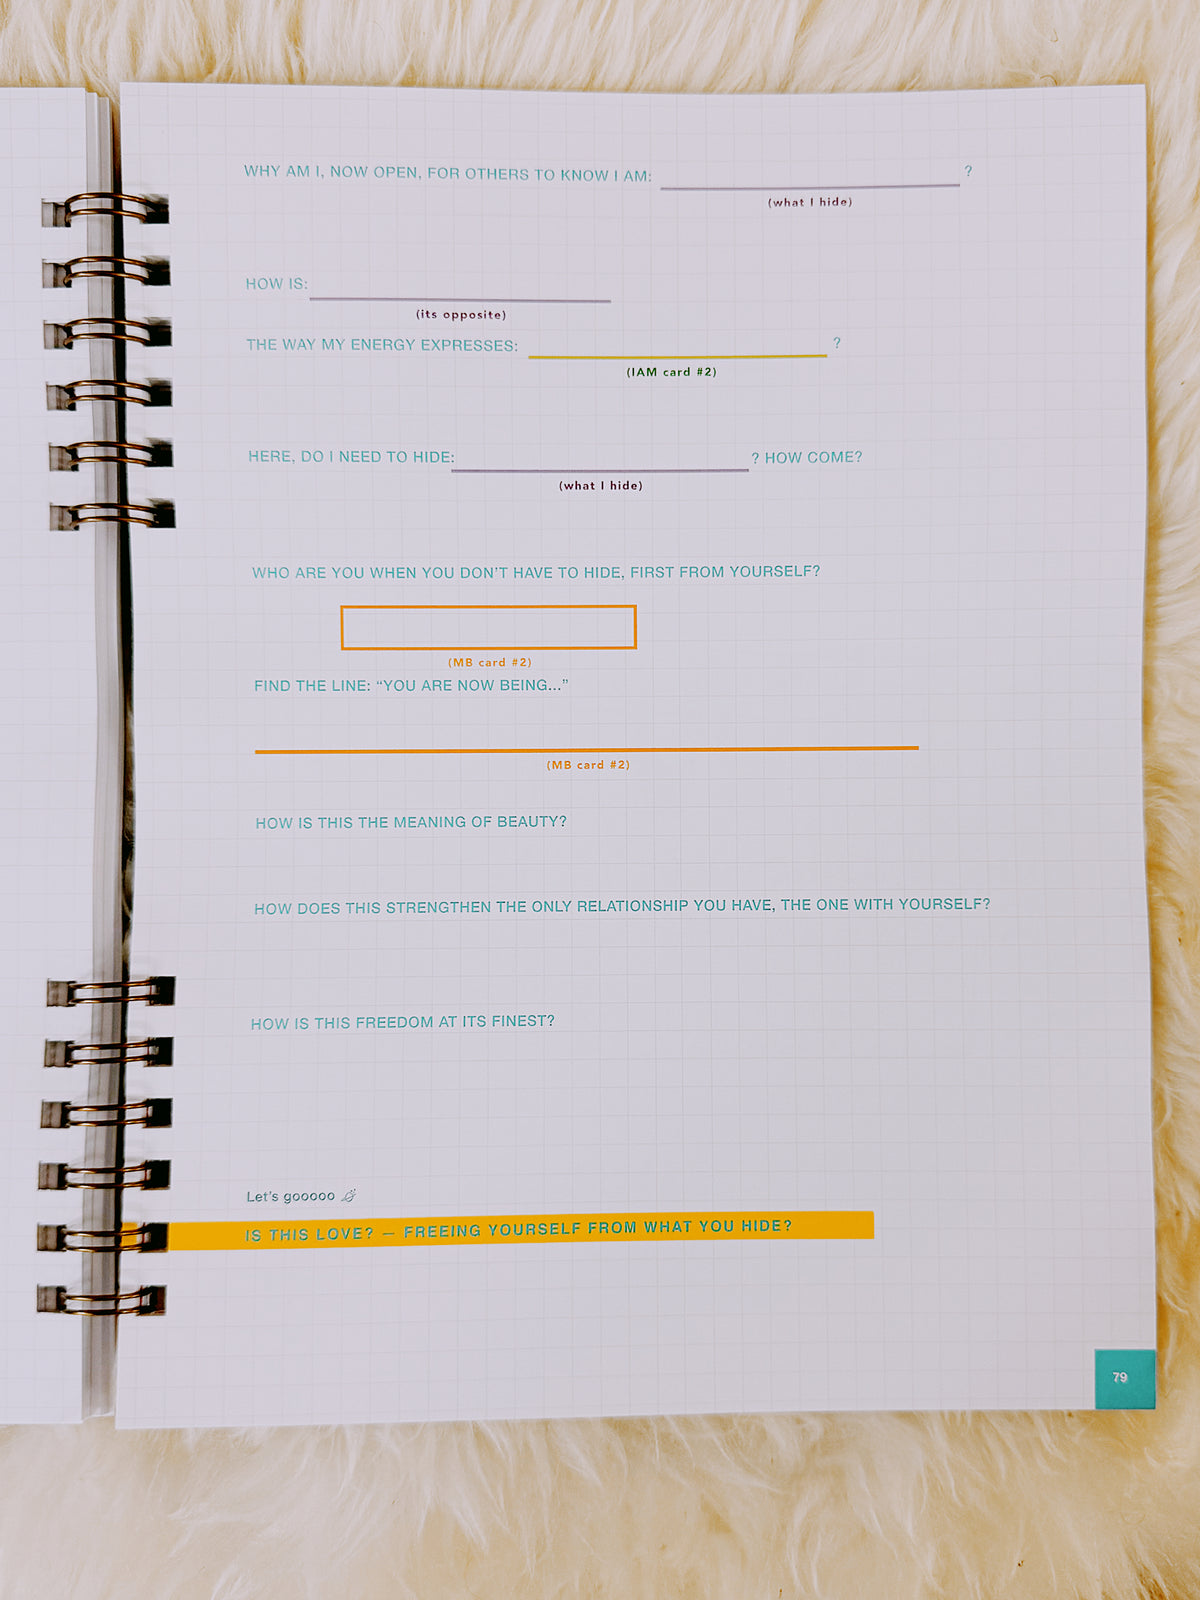 WHY AM I, NOW OPEN, FOR OTHERS TO KNOW I AM: ?
(what I hide)
HOW IS:
(its opposite)
THE WAY MY ENERGY EXPRESSES: ?
(IAM card #2)
HERE, DO I NEED TO HIDE: ? HOW COME?
(what I hide)
WHO ARE YOU WHEN YOU DON'T HAVE TO HIDE, FIRST FROM YOURSELF?
(MB card #2)
FIND THE LINE: “YOU ARE NOW BEING...”
(MB card #2)
HOW IS THIS THE MEANING OF BEAUTY?
HOW DOES THIS STRENGTHEN THE ONLY RELATIONSHIP YOU HAVE, THE ONE WITH YOURSELF?
HOW IS THIS FREEDOM AT ITS FINEST?
Let's gooooo
IS THIS LOVE? — FREEING YOURSELF FROM WHAT YOU HIDE?
79